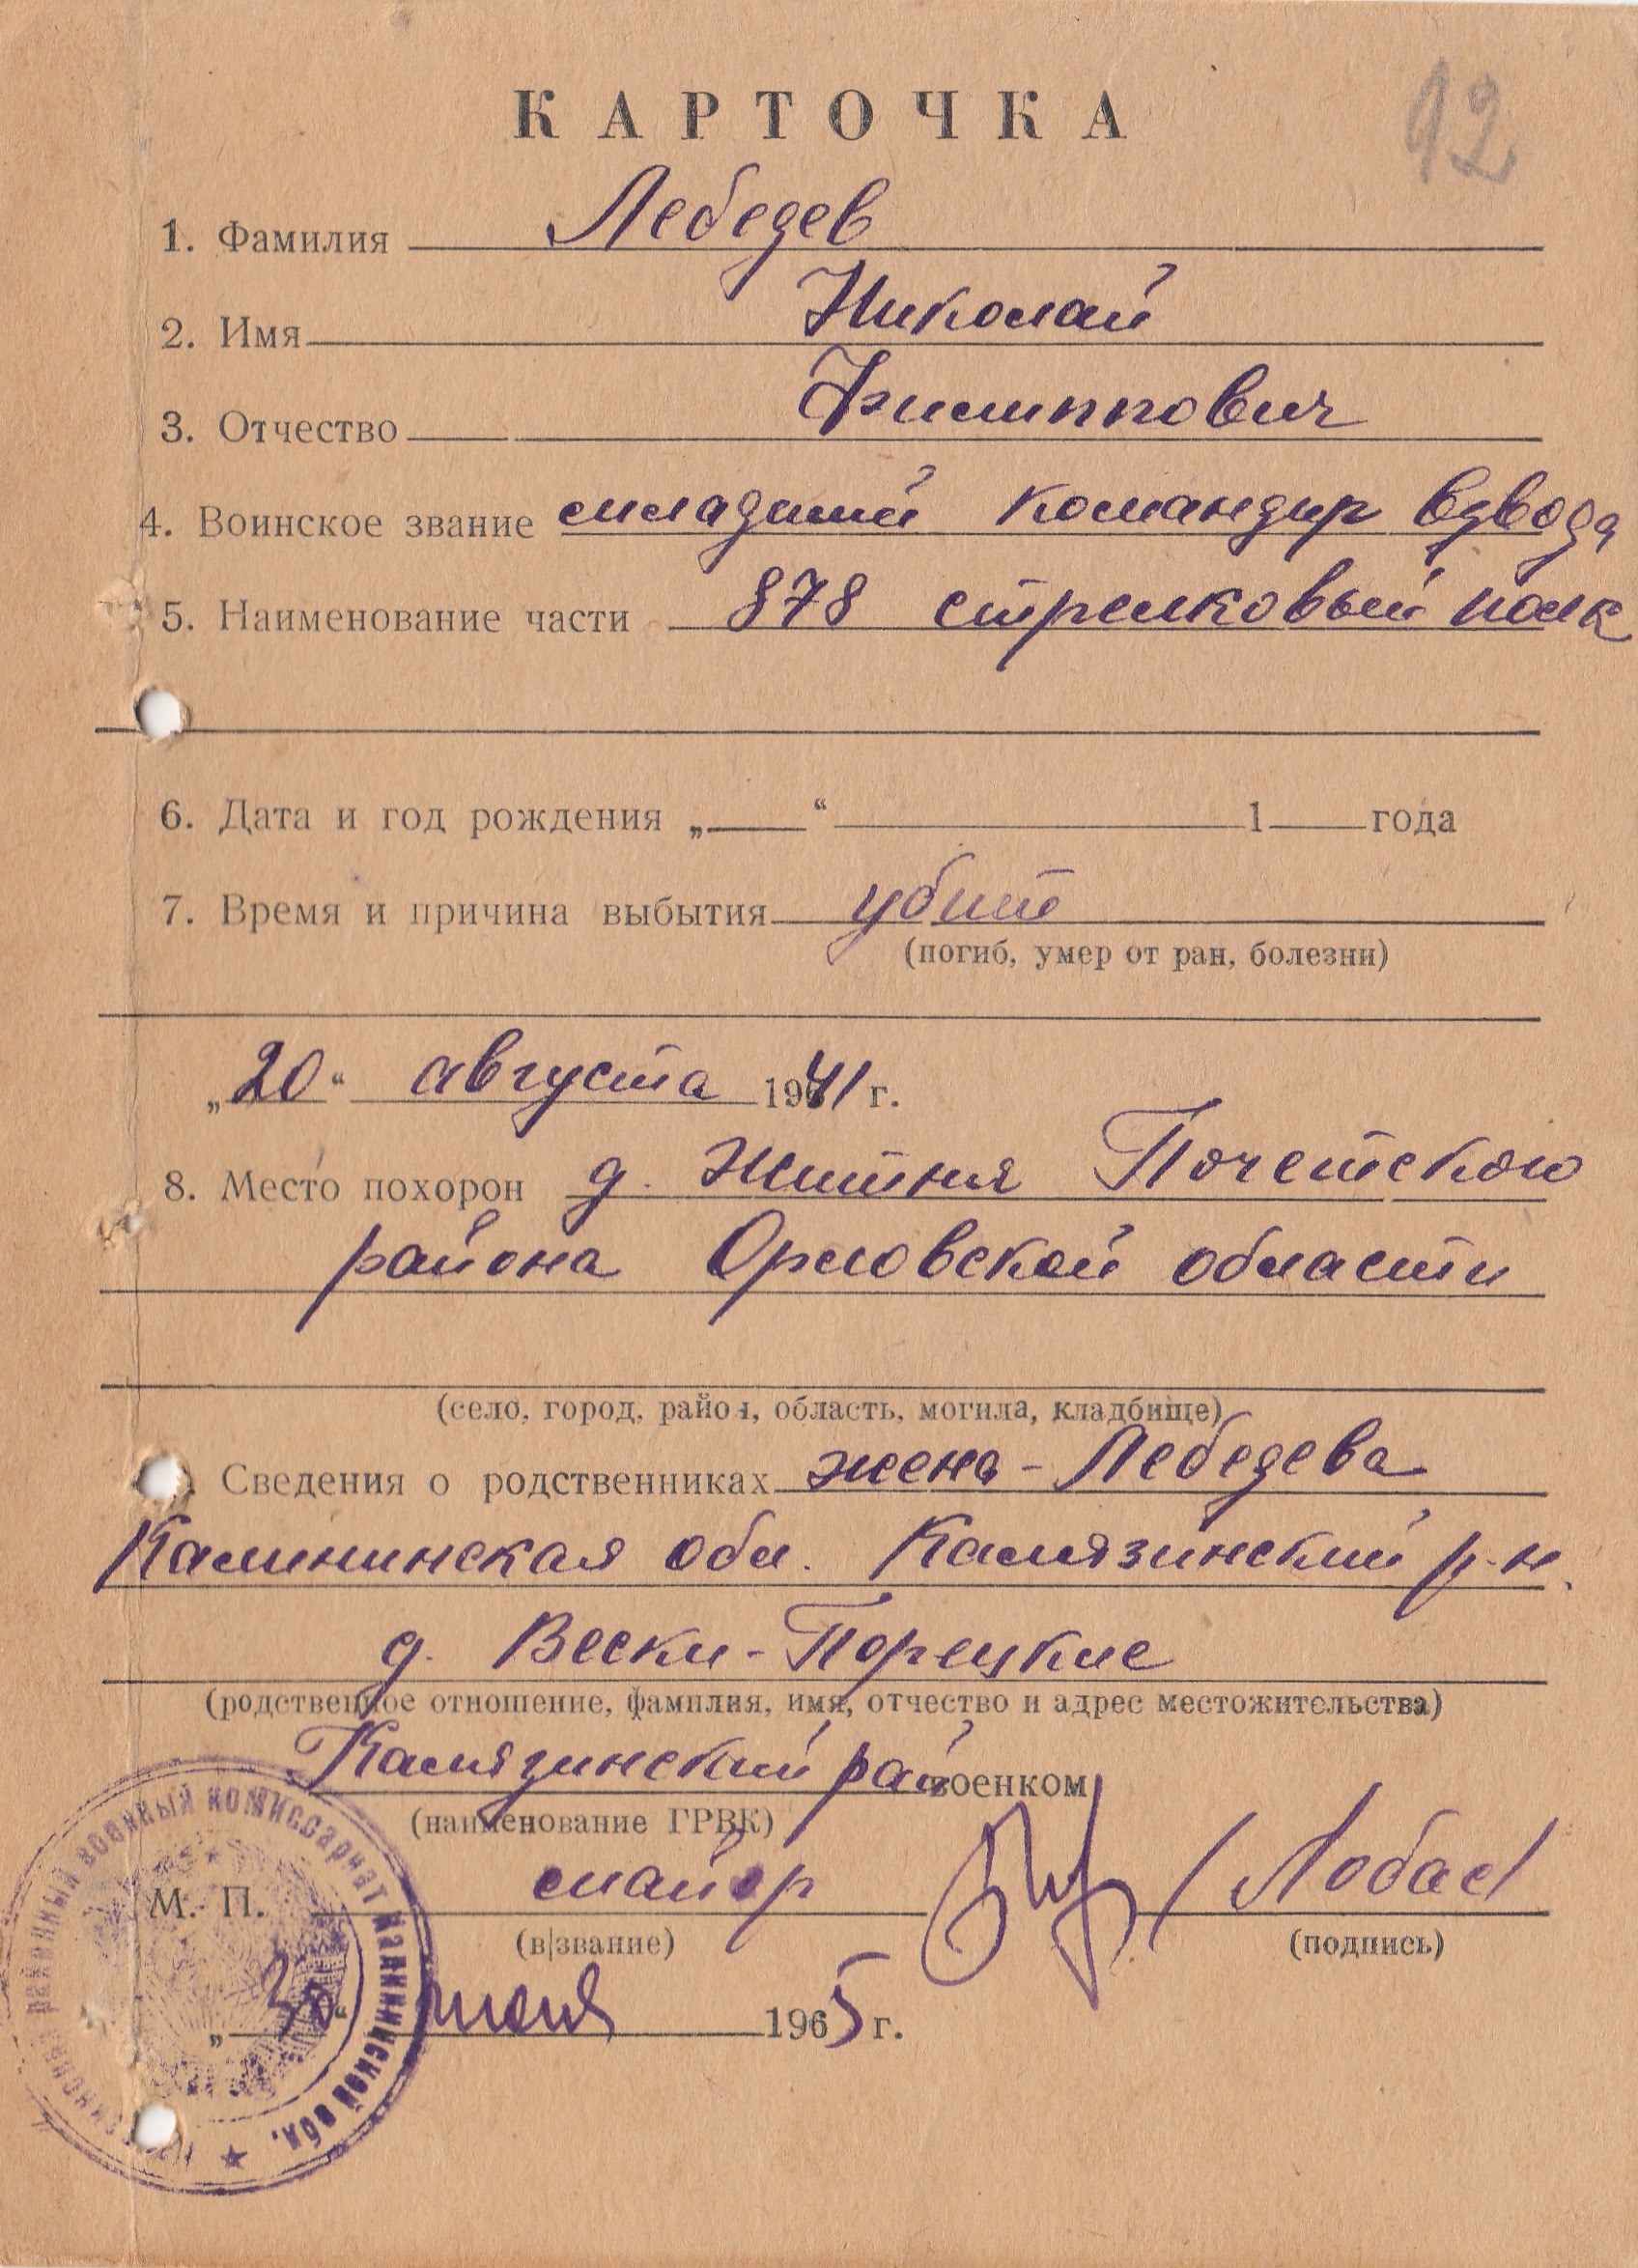 12
КАРТОЧКА
1. Фамилия Лебедев
2. Имя Николай
3. Отчество Филиппович
4. Воинское звание младший командир взвода
5. Наименование части 878 стрелковый полк
6. Дата и год рождения „ “ 1 года
7. Время и причина выбытия убит
(погиб, умер от ран, болезни)
„20“ августа 1941 г.
8. Место похорон д. Житня Почетского
района Орловской области
(село, город, район, область, могила, кладбище)
Сведения о родственниках жена - Лебедева
Калининская обл. Калязинский р-н.
д. Вески-Порецкие
(родственное отношение, фамилия, имя, отчество и адрес местожительства)
Калязинский райвоенком
(наименование ГРВК)
М. П. майор /Лобас/
(в/звание) (подпись)
„30“ июня 1965 г.
районный военный комиссариат Калининской обл.